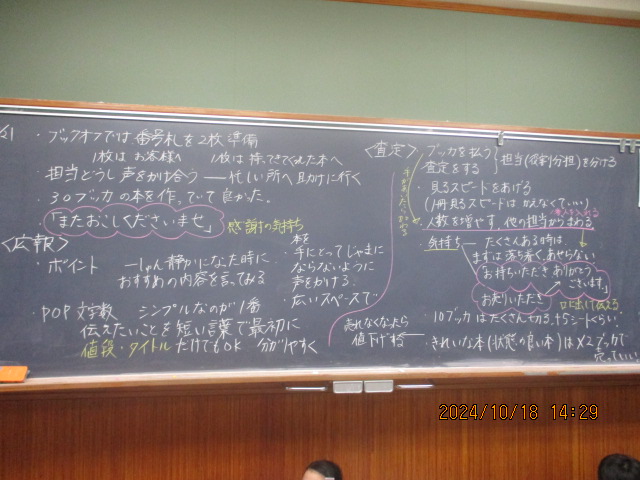 ・ブックオフでは番号札を2枚準備
1枚はお客様へ 1枚は持ってきてくれた本へ
・担当どうし声をかけ合う――忙しい所へ助けに行く
・30ブッカの本を作っていて良かった。
・「またおこしくださいませ」 感謝の気持ち
<広報>
・ポイント ― しゅん静かになった時に
おすすめの内容を言ってみる
・本を
手にとってじゃまに
ならないように
声をかける。
・広いスペースで
・POP文字数 シンプルなのが1番
伝えたいことを短い言葉で最初に
値段・タイトルだけでもOK 分かりやすく
<査定>
・ブッカを払う
査定をする
担当(役割分担)を分ける
・見るスピードをあげる
(1冊見るスピードはかえなくていい)
・人数を増やす、他の担当からまわる
・気持ち ― たくさんある時は
まずは落ち着く、あせらない
「お持ちいただきありがとう
ございます」
お売りいただき
口に出して伝える
・10ブッカはたくさん切る、+5シートくらい
売れなくなったら
値下げする
・きれいな本(状態の良い本)は×2ブッカで
売っていい!
2024/10/18 14:29